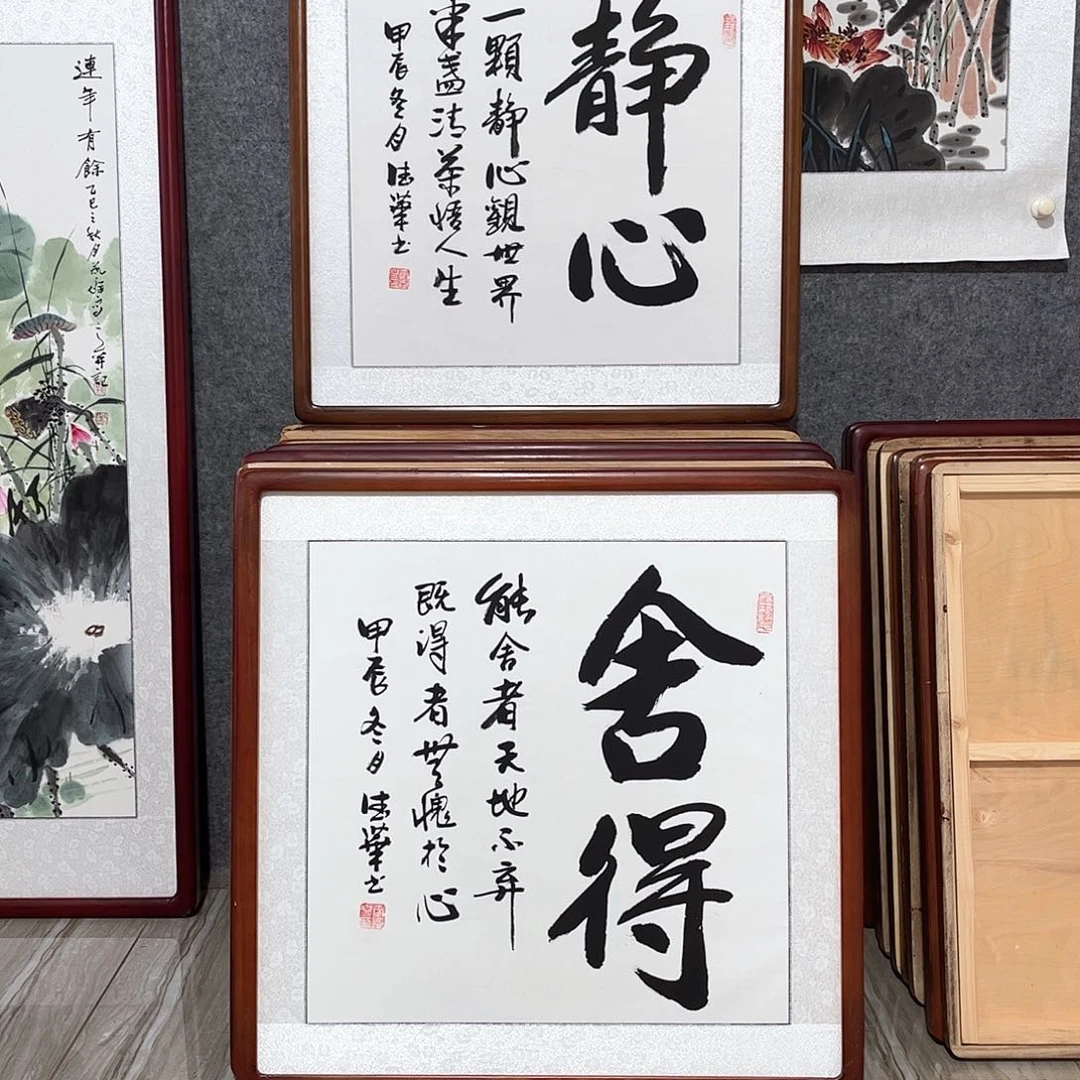 静心
一顆静心觀世界
半盏清茶悟人生
甲辰冬月德華书
舍得
能舍者天地不弃
既得者無愧於心
甲辰冬月德華书
連年有餘
乙巳之秋月